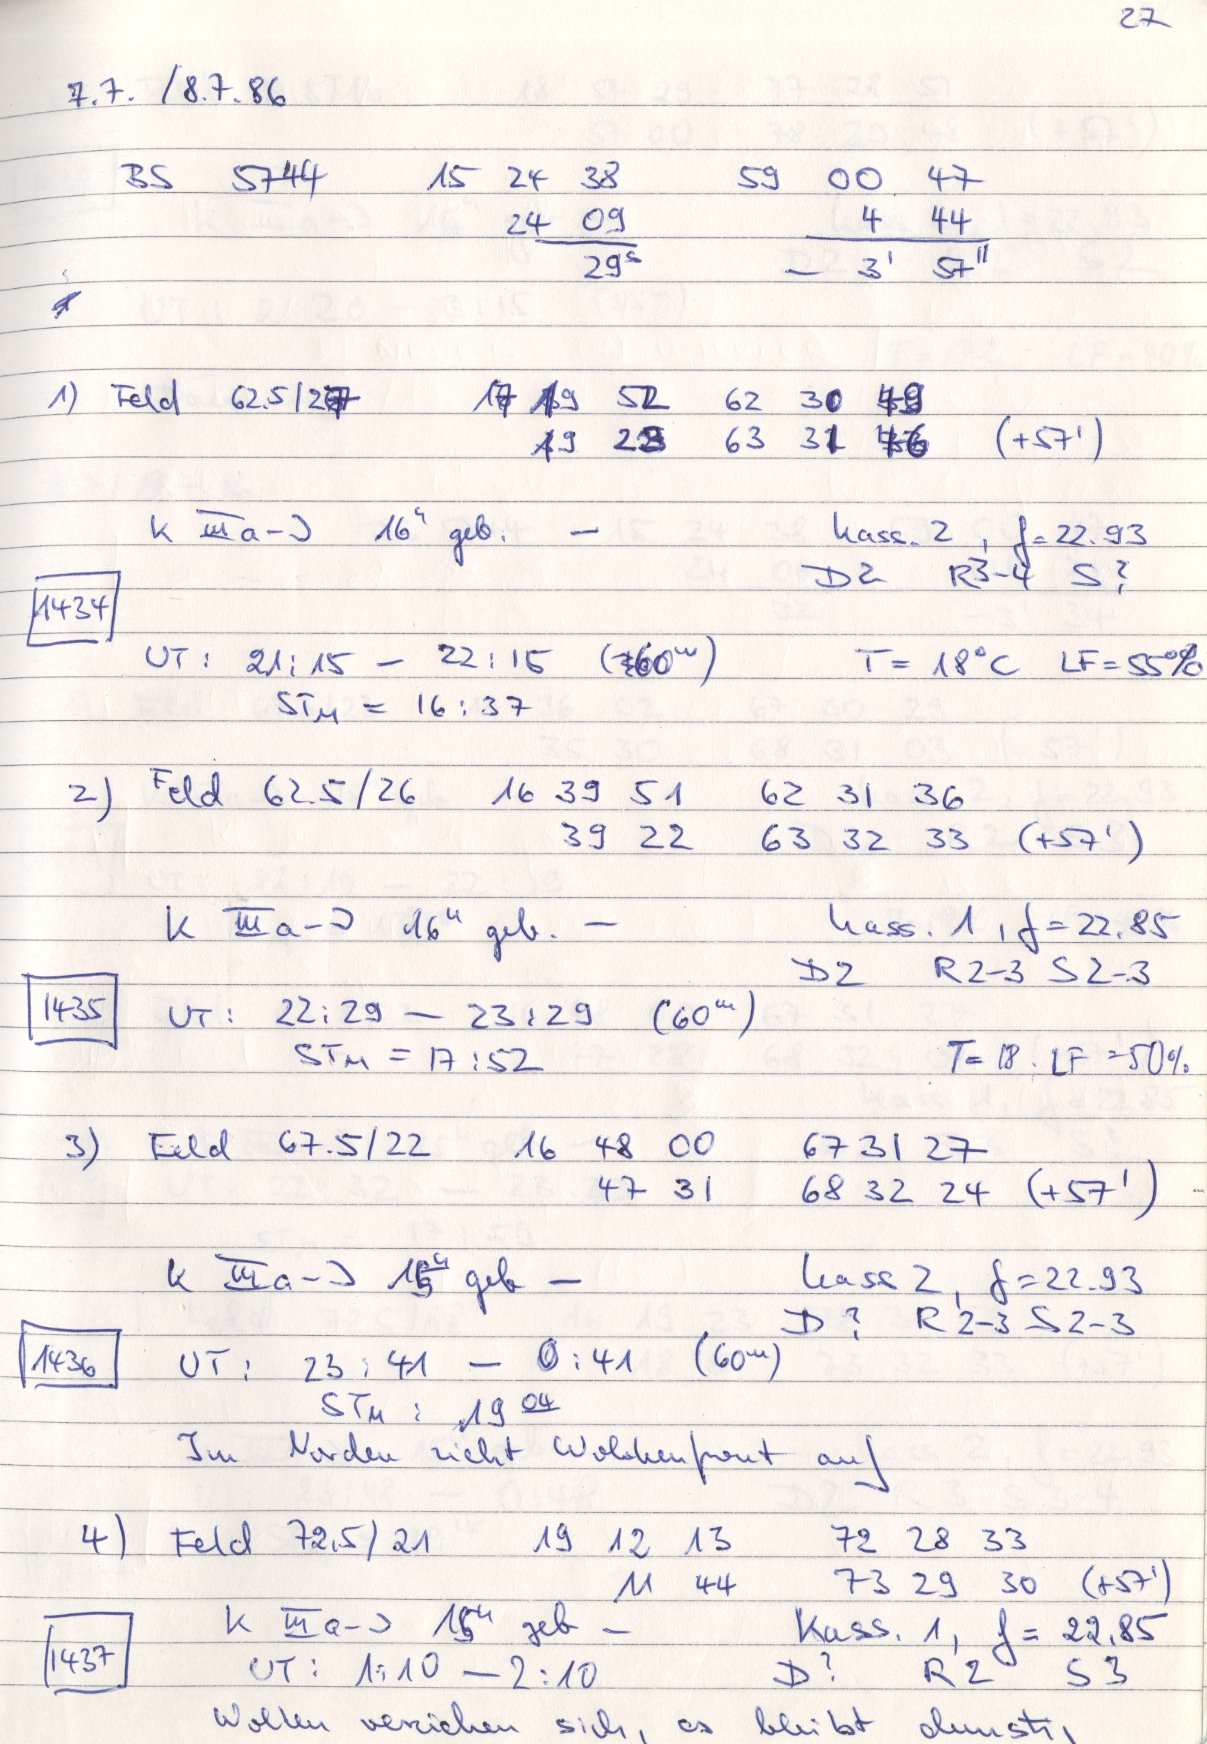 27
7.7. /8.7.86
BS 5744 15 24 38 59 00 47
24 09 4 44
29ˢ - 3' 57"
1) Feld 62.5/27 17 19 52 62 30 49
19 23 63 31 46 (+57')
K IIIa-J 16ʰ geb. - Kass. 2, f=22.93
D2 R3-4 S?
1434
UT: 21:15 - 22:15 (60ᵐ) T= 18°C LF=55%
STM = 16:37
2) Feld 62.5/26 16 39 51 62 31 36
39 22 63 32 33 (+57')
K IIIa-J 16ʰ geb. - Kass. 1, f=22.85
D2 R2-3 S2-3
1435 UT: 22:29 - 23:29 (60ᵐ)
STM = 17:52 T= 18. LF=50%
3) Feld 67.5/22 16 48 00 67 31 27
47 31 68 32 24 (+57')
K IIIa-J geb - Kass 2, f=22.93
D? R2-3 S2-3
1436 UT: 23:41 - 0:41 (60ᵐ)
STM: 19 04
Im Norden zieht Wolkenfront auf
4) Feld 72.5/21 19 12 13 72 28 33
11 44 73 29 30 (+57')
K IIIa-J geb - Kass. 1, f= 22.85
1437 UT: 1:10 - 2:10 D? R2 S3
Wolken verziehen sich, es bleibt dunstig